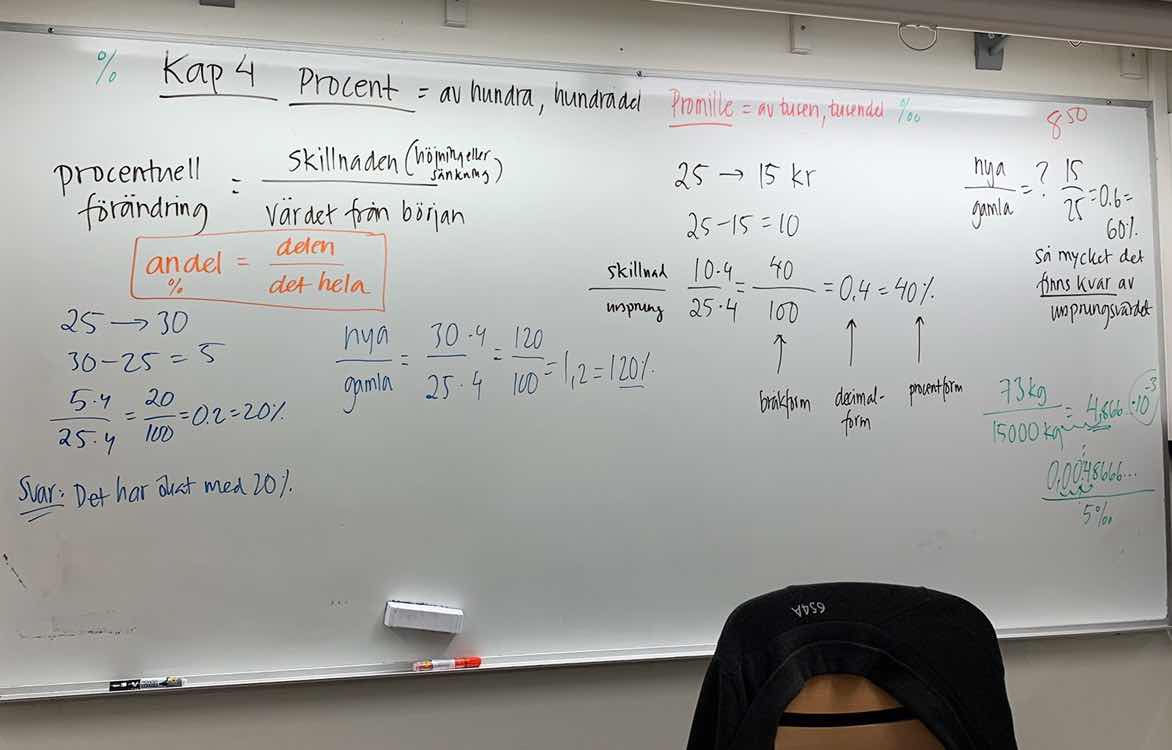 % Kap 4 Procent = av hundra, hundradel
Promille = av tusen, tusendel ‰
8 50
procentuell förändring = skillnaden (höjning eller sänkning) / värdet från början
andel % = delen / det hela
25 → 30
30 - 25 = 5
5·4 / 25·4 = 20 / 100 = 0.2 = 20%
Svar: Det har ökat med 20%.
nya / gamla = 30·4 / 25·4 = 120 / 100 = 1,2 = 120%.
25 → 15 kr
25 - 15 = 10
skillnad / ursprung 10·4 / 25·4 = 40 / 100 = 0,4 = 40%.
↑ ↑ ↑
bråkform decimal-form procentform
nya / gamla = ? 15 / 25 = 0.6 =
60%.
så mycket det
finns kvar av
ursprungsvärdet
73 kg / 15000 kg = 4,866 · 10⁻³
0,0048666...
5‰
654A